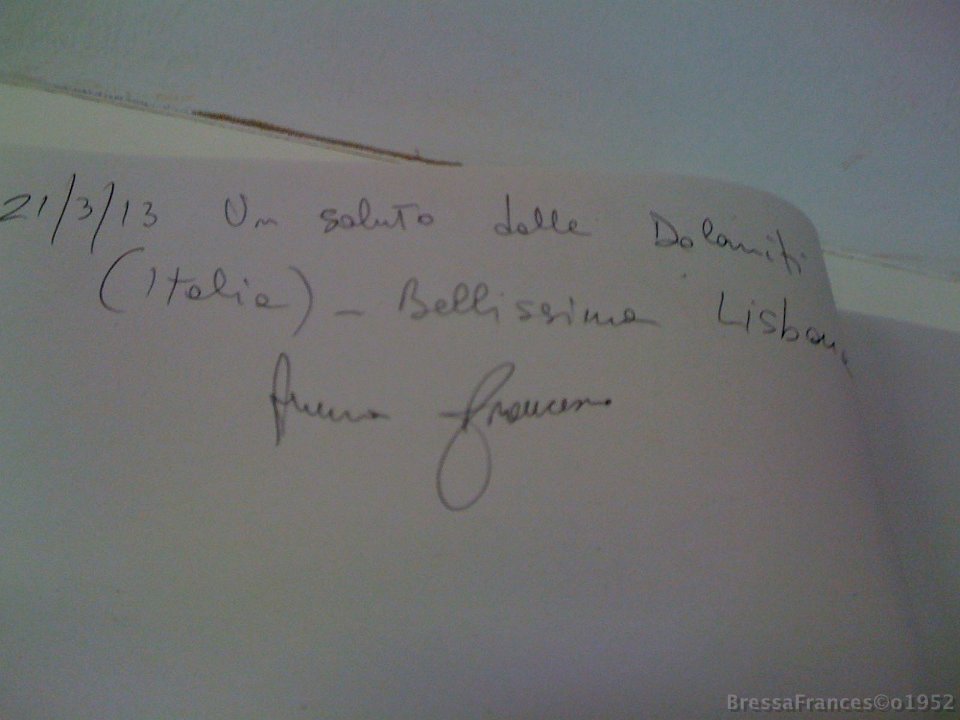 21/3/13 Un saluto dalle Dolomiti
(Italia) - Bellissima Lisbona
Francesca
BressaFrances©o1952